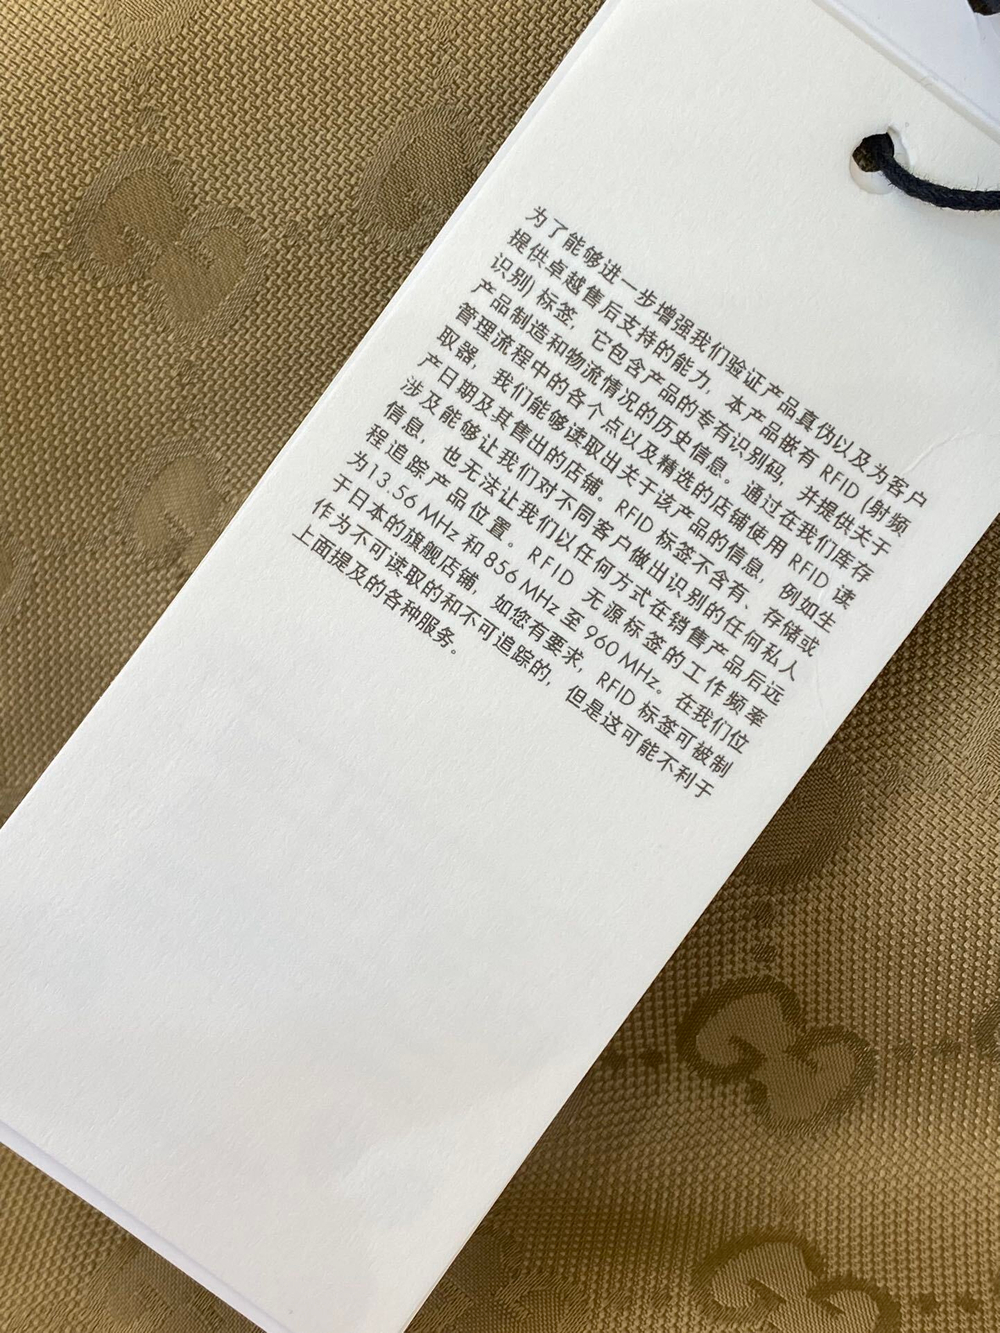 为了能够进一步增强我们验证产品真伪以及为客户
提供卓越售后支持的能力，本产品嵌有 RFID (射频
识别) 标签，它包含产品的专有识别码，并提供关于
产品制造和物流情况的历史信息。通过在我们库存
管理流程中的各个点以及精选的店铺使用 RFID 读
取器，我们能够读取出关于该产品的信息，例如生
产日期及其售出的店铺。RFID 标签不含有、存储或
涉及能够让我们对不同客户做出识别的任何私人
信息，也无法让我们以任何方式在销售产品后远
程追踪产品位置。RFID 无源标签的工作频率
为13.56 MHz 和 856 MHz 至 960 MHz。在我们位
于日本的旗舰店铺，如您有要求，RFID 标签可被制
作为不可读取的和不可追踪的，但是这可能不利于
上面提及的各种服务。